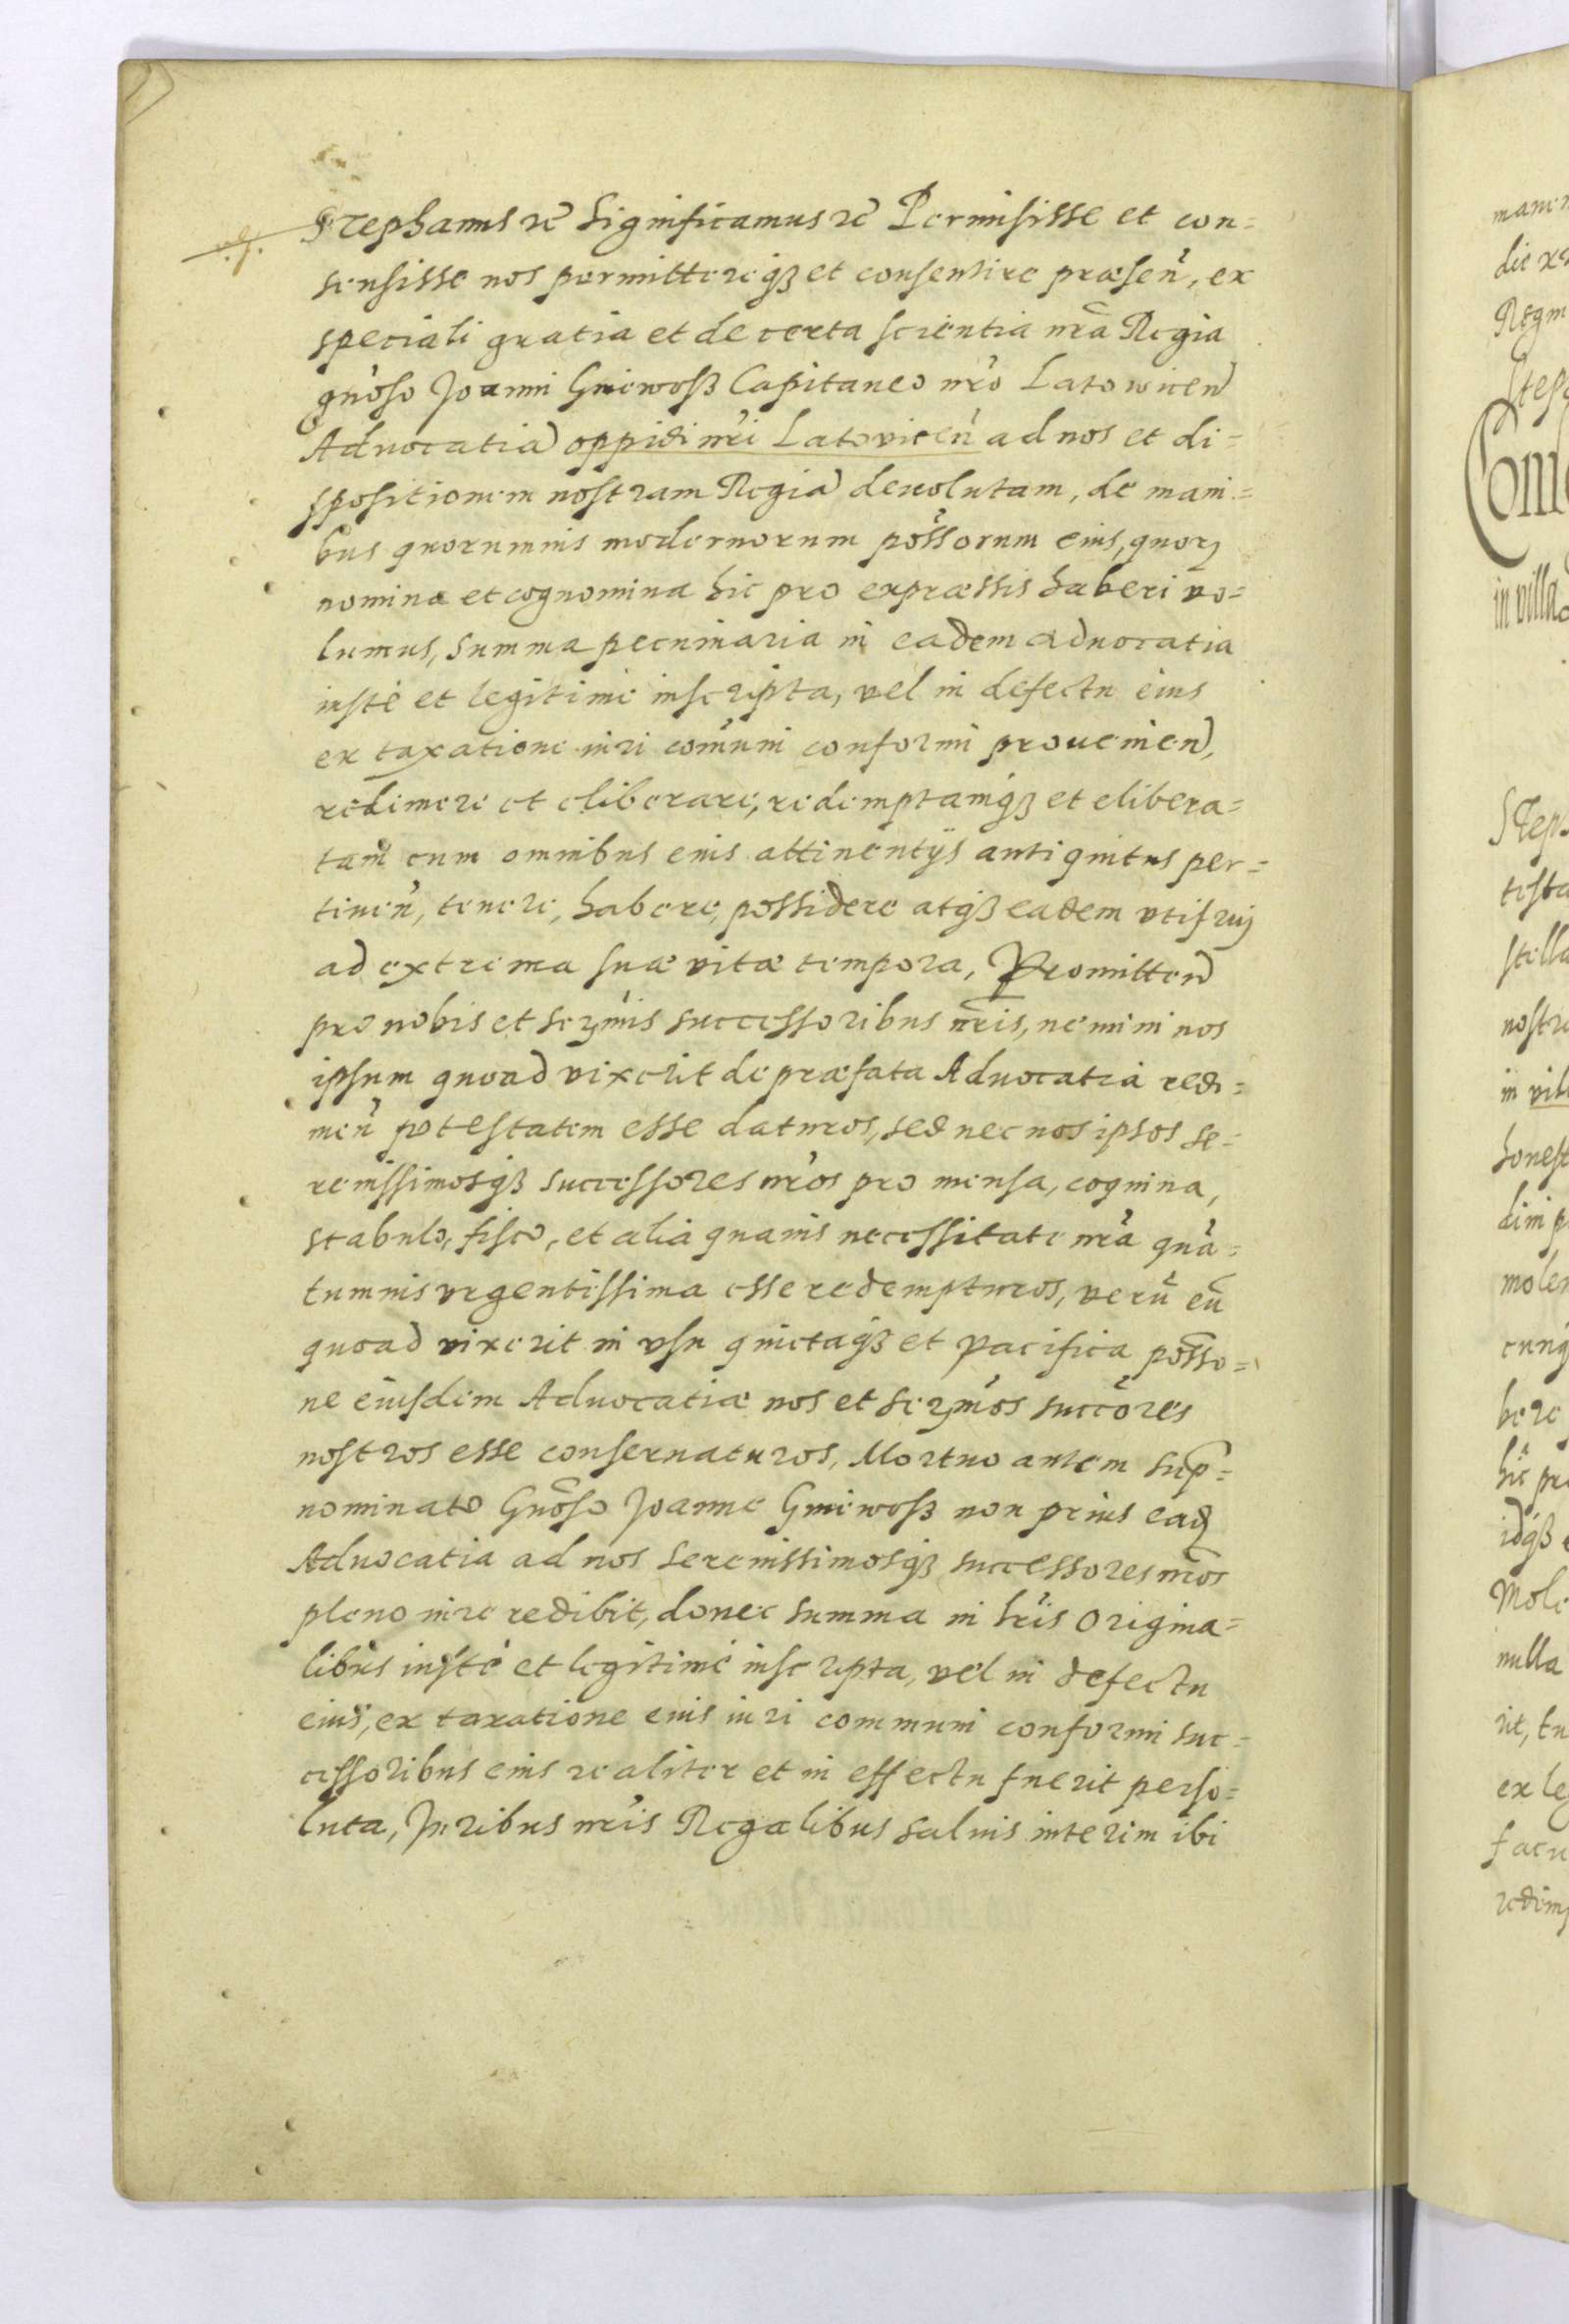 Stephanus rc̄ Significamus rc̄ Permisisse et con=
sensisse nos permittereqȝ et consentire præsen̄, ex
speciali gratia et de certa scientia nr̄a Regia
gn̄oso Joanni Gniewosß Capitaneo nr̄o Latowicen̄
Aduocatiā oppidi nr̄i Latouicen̄ ad nos et di=
spositionem nostram Regiā deuolutam, de mani=
bus quorumuis modernorum pōssorum eius, quorꝫ
nomina et cognomina hic pro expræssis haberi vo=
lumus, summa pecuniaria in eadem aduocatia
iustè et legitimè inscripta, vel in defectu eius
ex taxatione iuri com̄uni conformi prouenien̄,
redimere et eliberare, redemptamqȝ et elibera=
tam̄ cum omnibus eius attinentijs antiquitus per=
tinen̄, tenere, habere, possidere atqȝ eadem vtifruj
ad extrema suæ vitæ tempora, Promitten̄
pro nobis et serꝫmis successoribus nr̄is, nemini nos
ipsum quoad vixerit de præfata Aduocatia redi=
men̄ potestatem esse daturos, sed nec nos ipsos se=
renissimosqȝ successores nr̄os pro mensa, coquina,
stabulo, fisco, et alia quauis necessitate nr̄a quā=
tumuis vrgentissima esse redempturos, verū eū
quoad vixerit in vsu quietaqȝ et pacifica pōsso=
ne eiusdem Aduocatiæ nos et serꝫmos succōres
nostros esse conseruaturos, Mortuo autem sup̄=
nominato Gn̄oso Joanne Gniewosß non prius eadꝫ
Aduocatia ad nos serenissimosqȝ successores nr̄os
pleno iure redibit, donec summa in lr̄is origina=
libus iustè et legitimè inscripta, vel in defectu
eius, ex taxatione eius iuri communi conformi suc=
cessoribus eius realiter et in effectu fuerit perso=
luta, Juribus nr̄is Regalibus saluis interim ibi
manen
die xx
Regni
Steph
Cons
in villa
Steph
testa
stella
nostra
in vill
honest
dim p
moler
cunq
bere
hic pro
idqȝ
Mole
nulla
rit, tu
ex leg
facu
redimp